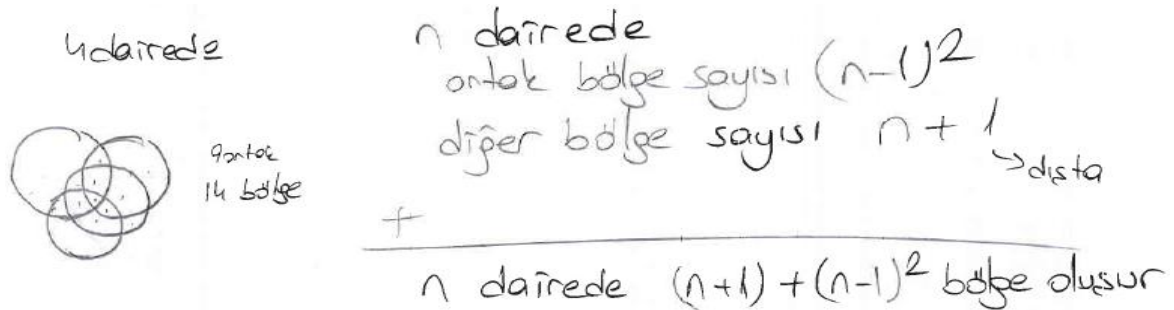 4 dairede
9 ortak
14 bölge
n dairede
ortak bölge sayısı (n-1)²
diğer bölge sayısı n + 1
↳ dışta
+
n dairede (n+1) + (n-1)² bölge oluşur